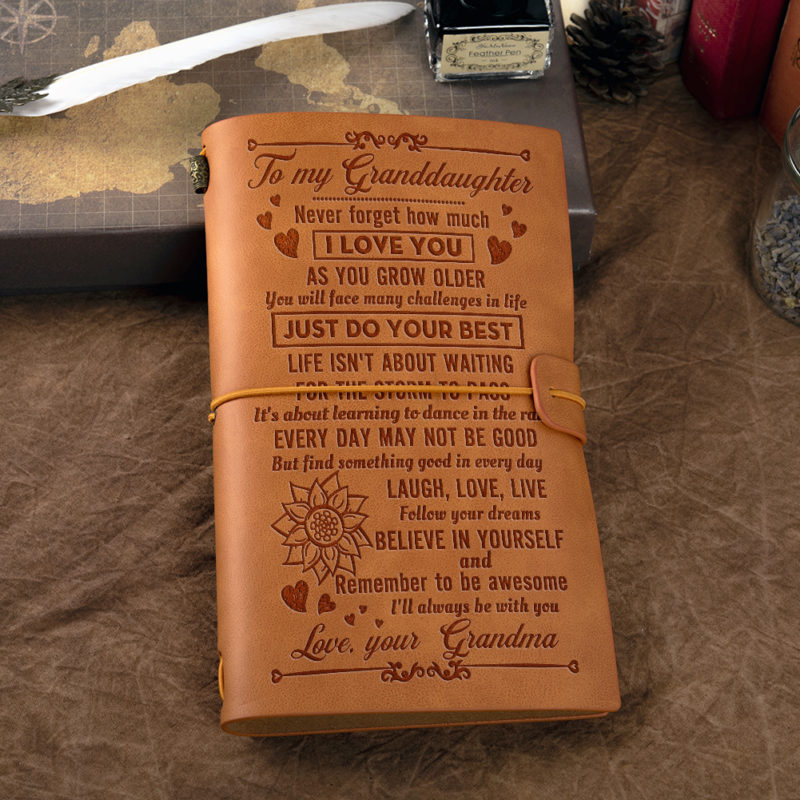 Feather Pen
To my Granddaughter
Never forget how much
I LOVE YOU
AS YOU GROW OLDER
You will face many challenges in life
JUST DO YOUR BEST
LIFE ISN'T ABOUT WAITING
FOR THE STORM TO PASS
It's about learning to dance in the
EVERY DAY MAY NOT BE GOOD
But find something good in every day
LAUGH, LOVE, LIVE
Follow your dreams
BELIEVE IN YOURSELF
and
Remember to be awesome
I'll always be with you
Love, your Grandma